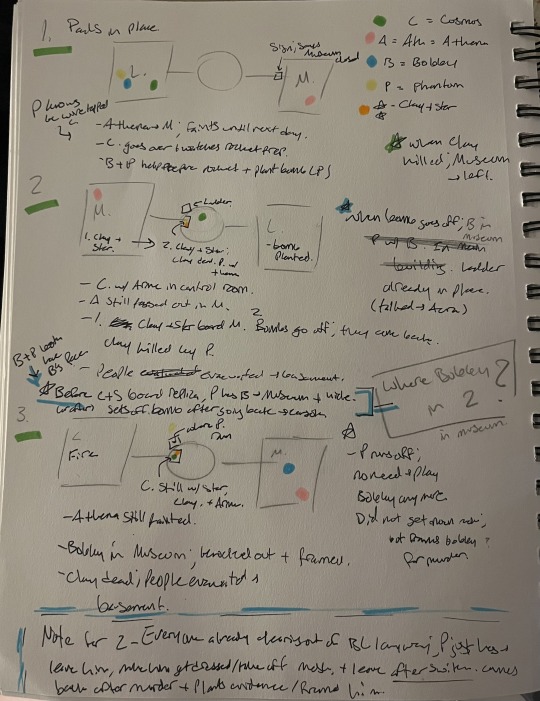 1. Parts in place
C = Cosmos
A = Ath = Athena
B = Bobby
P = Phantom
- Clay + Star
L.
M.
Sign; says Museum closed
P knows
- Athena in M; faints until next day.
- C. goes over + watches rocket prep.
- B + P help prepare rocket + plant bombs LPS
when Clay killed; Museum → left.
2
M.
ladder
1. Clay + Star.
2. Clay + Star;
Clay dead. P. w/ them
L.
- bomb planted.
when bomb goes off; B in museum
P w/ B. In main building. Ladder
already in place.
- C. w/ Arme in control room.
- A still passed out in M.
- 1. Clay + Star board M. 2 Bombs go off; they come back.
Clay killed by P.
- People evacuated → basement.
Before C + S board replica, P has B → Museum + hide.
sets off bomb after going back
Where Bobby in 2?
in museum.
3.
L
Fire
where P. ran
M.
C. Still w/ Star,
Clay. + Arme.
- Athena still fainted.
- Bobby in Museum; knocked out + framed.
- Clay dead; People evacuated → basement.
- P runs off;
no need → play
Bobby anymore
Did not get
for murder.
Note for 2 - Everyone already clearing out of BC anyway, P just has →
leave him, make him get dressed/take off mask, + leave after switch. comes
back after murder + Plants evidence/framed him.